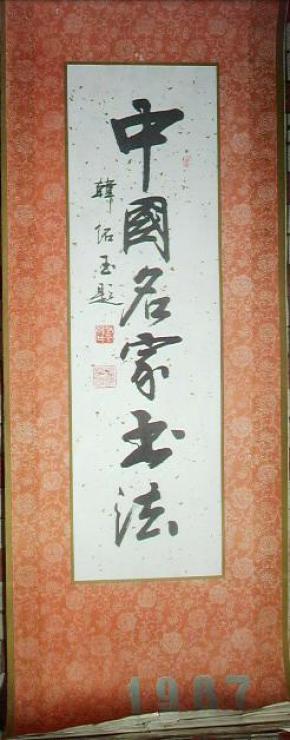 中國名家书法
韓绍玉題
1987